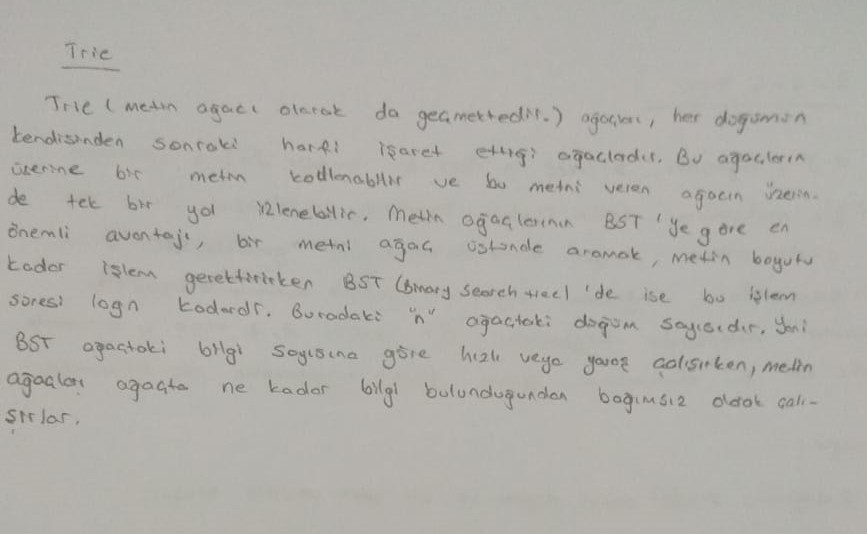 Trie
Trie (metin ağacı olarak da geçmektedir.) ağaçları, her düğümün
kendisinden sonraki harfi işaret ettiği ağaçlardır. Bu ağaçların
üzerine bir metin kodlanabilir ve bu metni veren ağacın üzerin-
de tek bir yol izlenebilir. Metin ağaçlarının BST 'ye göre en
önemli avantajı, bir metni ağaç üstünde aramak, metin boyutu
kadar işlem gerektirirken BST (Binary search tree) 'de ise bu işlem
süresi logn kadardr. Buradaki "n" ağaçtaki düğüm sayısıdır. Yani
BST ağaçtaki bilgi sayısına göre hızlı veya yavaş çalışırken, metin
ağaçları ağaçta ne kadar bilgi bulunduğundan bağımsız olarak çalı-
şırlar.